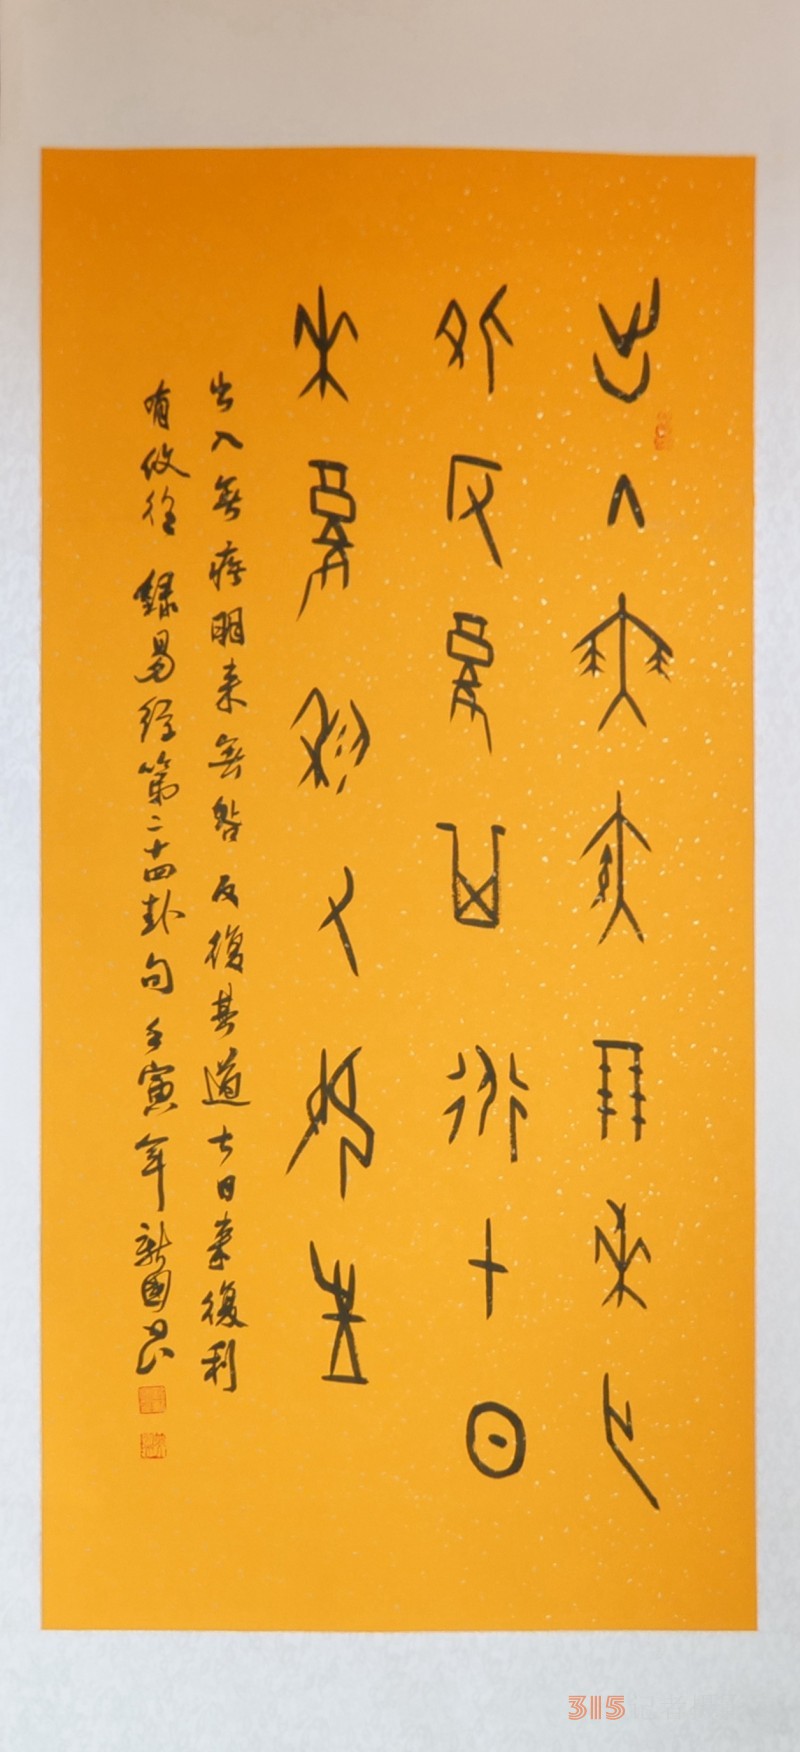 出入無疾朋來亡
咎反復其道七日
來復利又攸往
出入無疾朋来無咎反復其道七日来復利
有攸往 録易经第二十四卦句 壬寅年
315记者